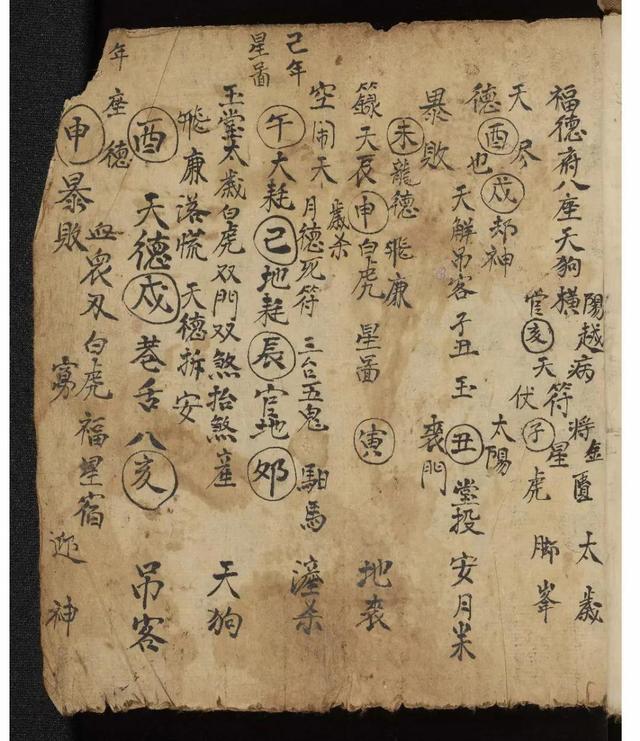 福德府八座天狗横陽越病将金匱太歳
天尽官亥天符星伏子虎脚峯
德酉戌却神也太陽
天解吊客子丑玉丑堂投安月米
暴敗喪門
未龍德飛廉
籙天辰申白虎星啚寅地喪
空闹天歲杀
己年月德死符三台五鬼馹馬瀘杀
星啚午大耗己地耗辰官地夘
玉堂太歲白虎双門双煞抬煞産天狗
飛廉落慌天德拆安
酉天德戌巷舌八亥吊客
年座德血衰刄白虎福星宿
申暴敗寡迎神